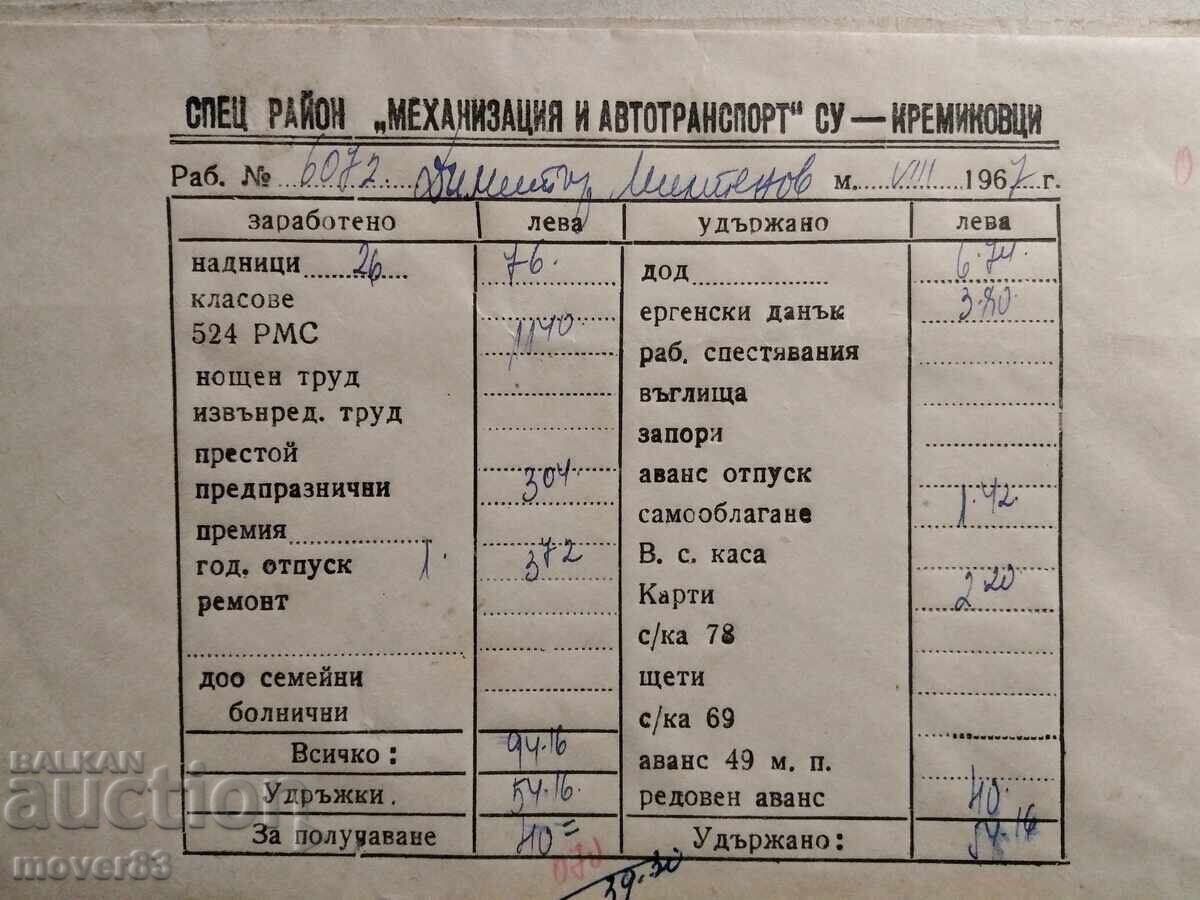 СПЕЦ РАЙОН „МЕХАНИЗАЦИЯ И АВТОТРАНСПОРТ" СУ — КРЕМИКОВЦИ
Раб. № 6072 Димитър м. VIII 1967 г.
заработено лева удържано лева
надници 26 76. дод 6.74.
класове ергенски данък 3.80.
524 РМС 11 40. раб. спестявания
нощен труд въглища
извънред. труд запори
престой аванс отпуск
предпразнични 3 04. самооблагане 1.42.
премия В. с. каса
год. отпуск 1. 3 72 Карти 2 20
ремонт с/ка 78
доо семейни щети
болнични с/ка 69
Всичко: 94.16 аванс 49 м. п.
Удръжки. 54.16. редовен аванс 40.
За получаване 40= Удържано: 54.16
39.30
BALKAN
auction
mover83